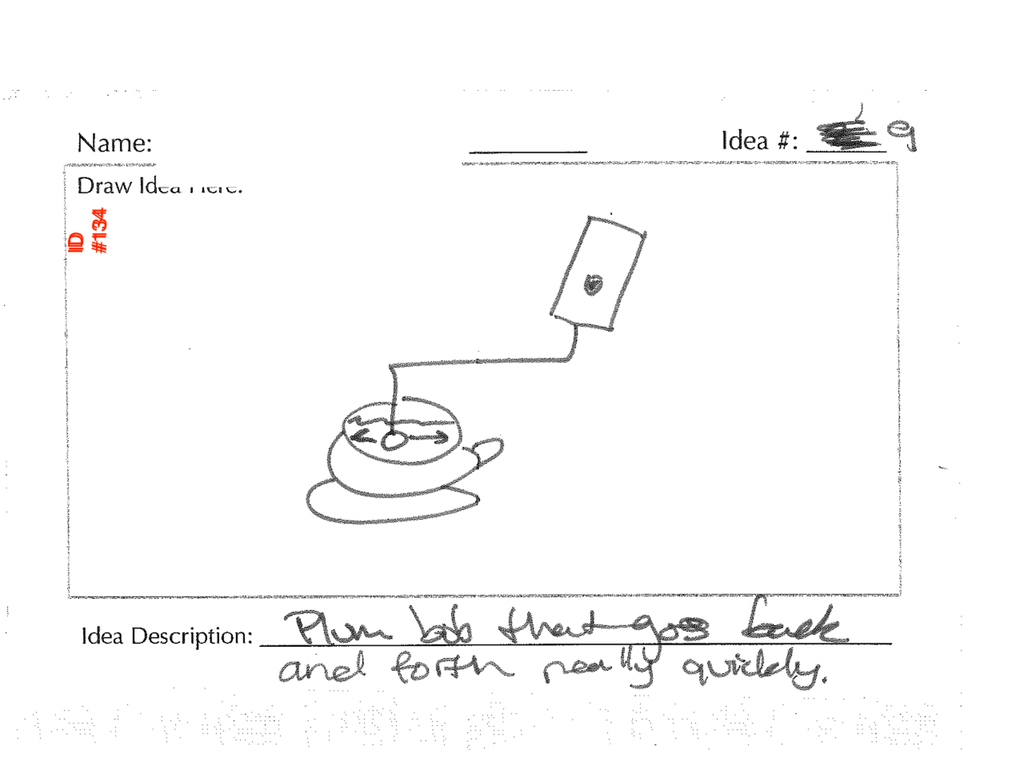 Name:
Idea #: 9
Draw Idea Here:
ID
#134
Idea Description: Plum bob that goes back
and forth really quickly.